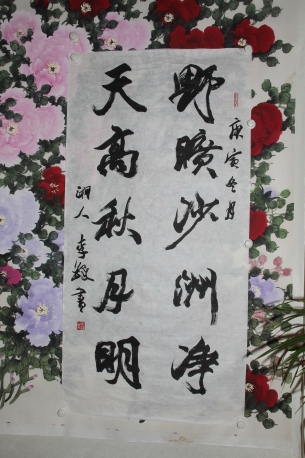 庚寅冬月
野曠沙洲净
天高秋月明
湖人
李毅书